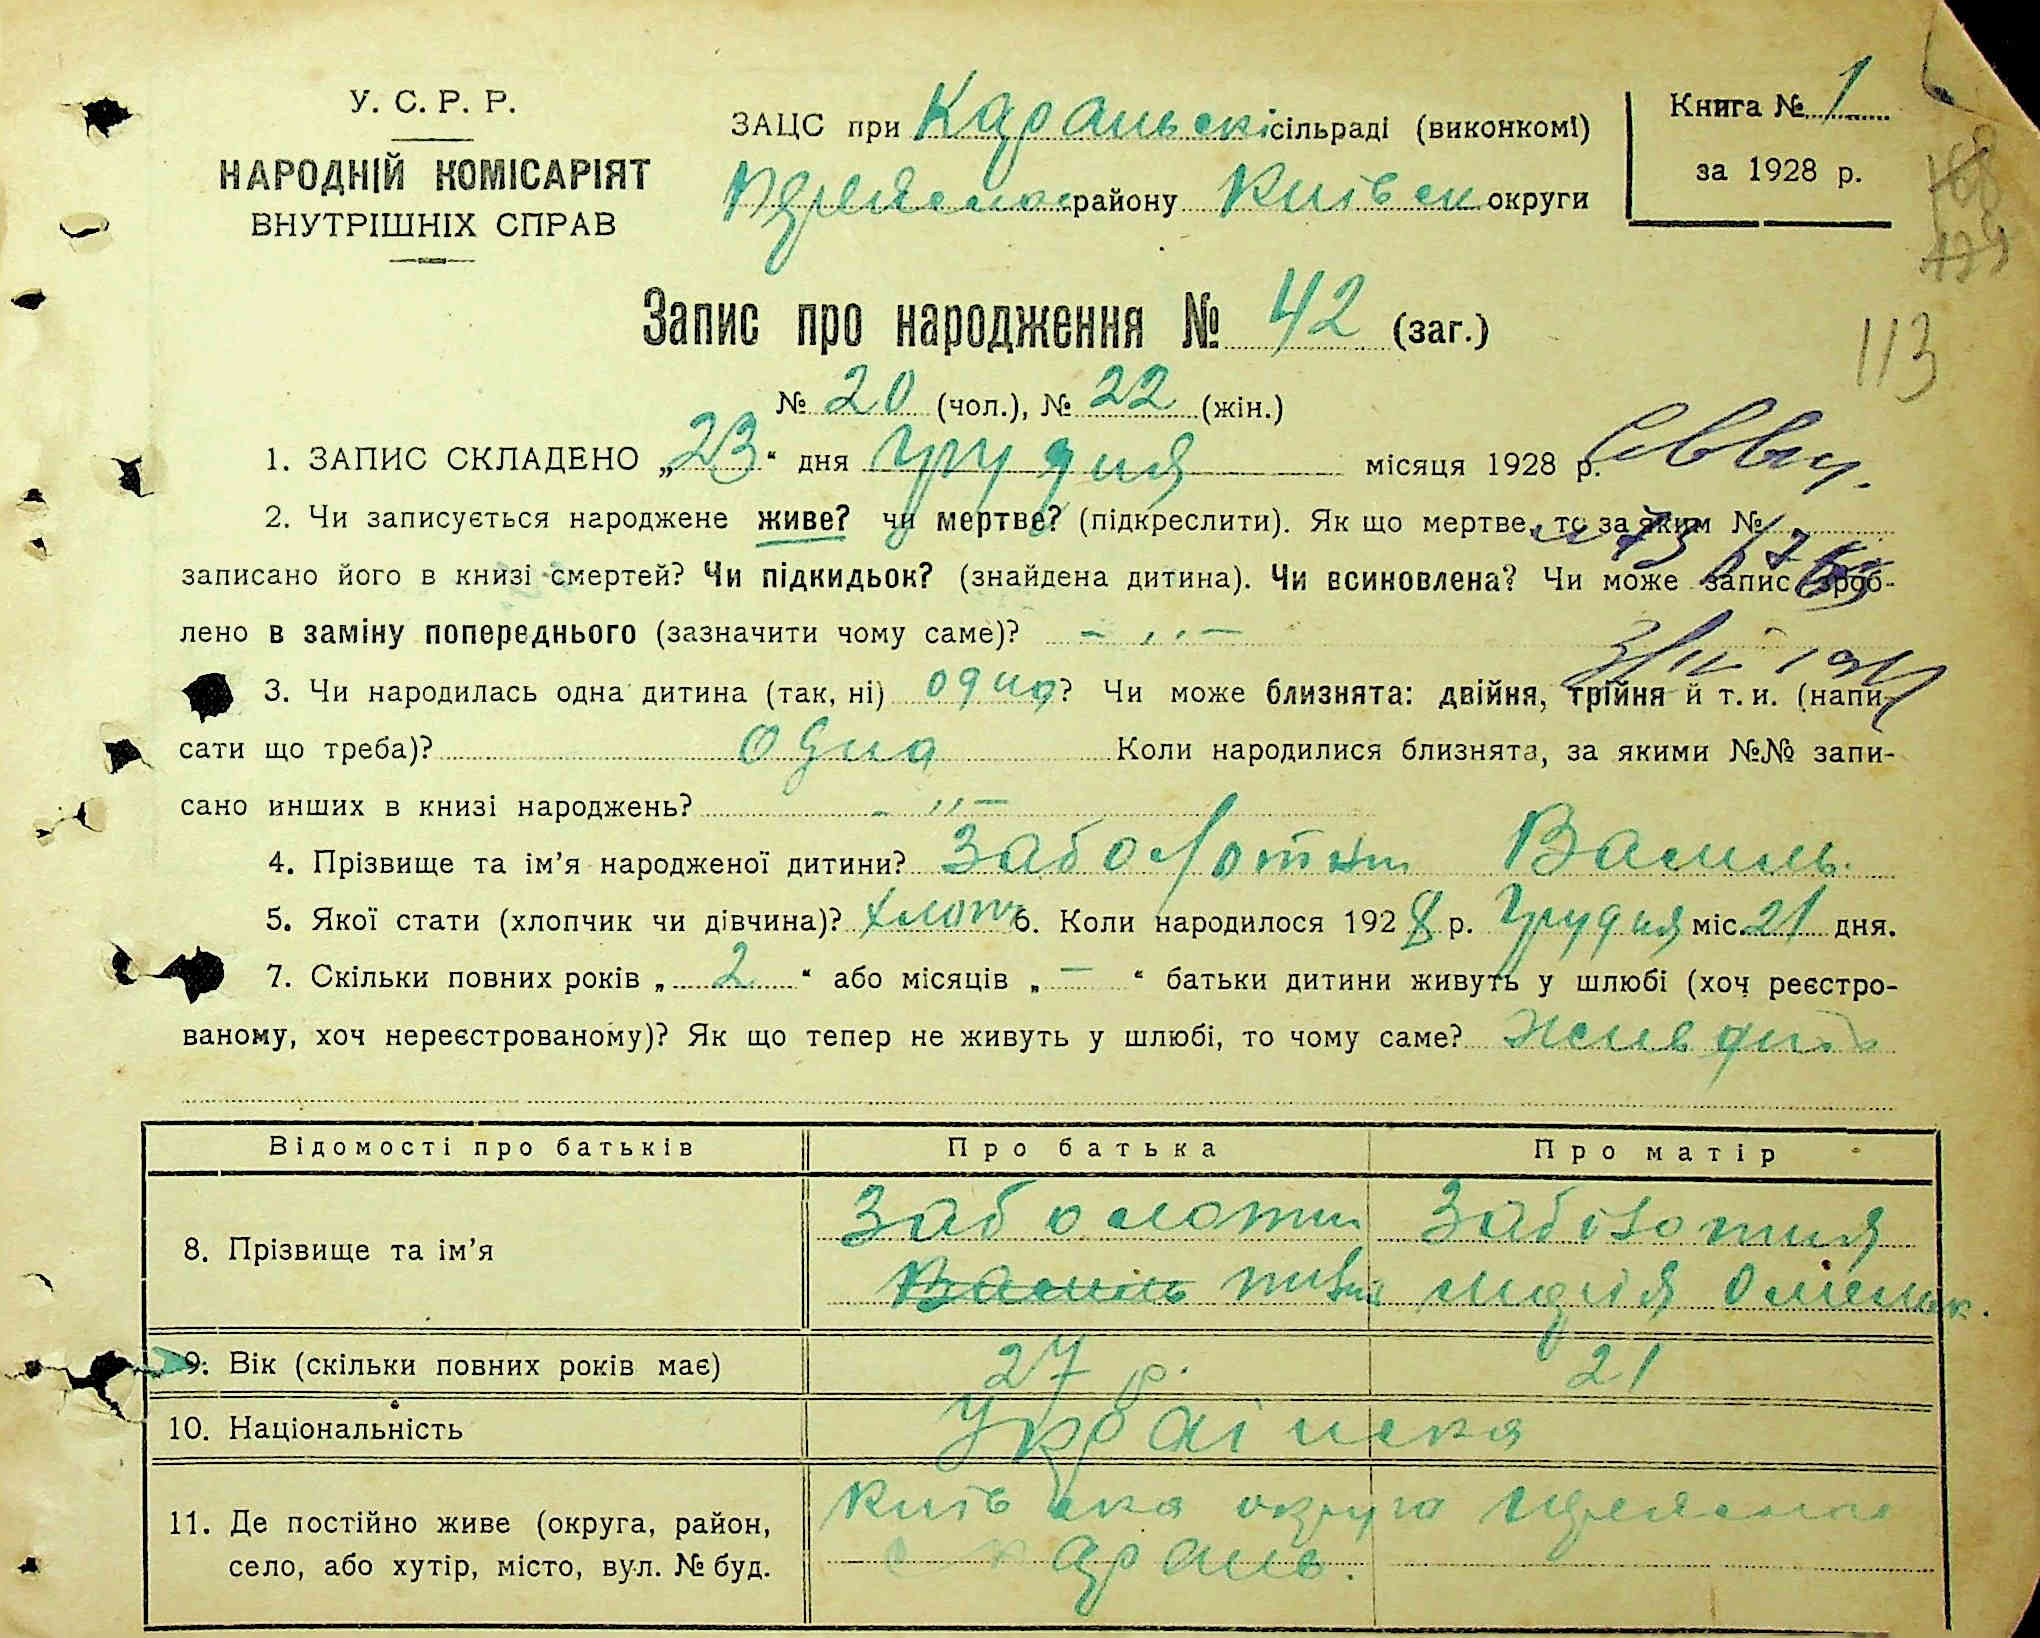 У. С. Р. Р.
НАРОДНІЙ КОМІСАРІЯТ
ВНУТРІШНІХ СПРАВ
ЗАЦС при Караньскі сільраді (виконкомі)
району Київськ округи
Книга № 1
за 1928 р.
168
113
Запис про народження № 42 (заг.)
№ 20 (чол.), № 22 (жін.)
1. ЗАПИС СКЛАДЕНО „23“ дня грудня місяця 1928 р.
2. Чи записується народжене живе? чи мертве? (підкреслити). Як що мертве, то за яким №
записано його в книзі смертей? Чи підкидьок? (знайдена дитина). Чи всиновлена? Чи може запис зроб-
лено в заміну попереднього (зазначити чому саме)? - ,, -
3. Чи народилась одна дитина (так, ні) одна? Чи може близнята: двійня, трійня й т. и. (напи-
сати що треба)? одна Коли народилися близнята, за якими №№ запи-
сано инших в книзі народжень? - ,, -
4. Прізвище та ім’я народженої дитини? Заболотни Василь.
5. Якої стати (хлопчик чи дівчина)? хлопч 6. Коли народилося 1928 р. Грудня міс. 21 дня.
7. Скільки повних років „ 2 “ або місяців „ — “ батьки дитини живуть у шлюбі (хоч реєстро-
ваному, хоч нереєстрованому)? Як що тепер не живуть у шлюбі, то чому саме?
Відомості про батьків Про батька Про матір
8. Прізвище та ім’я
Заболотни Заболотня
Василь Марія Омельк.
9. Вік (скільки повних років має) 27 р. 21
10. Національність Українска
11. Де постійно живе (округа, район,
село, або хутір, місто, вул. № буд.
Київська округа
с Карань.